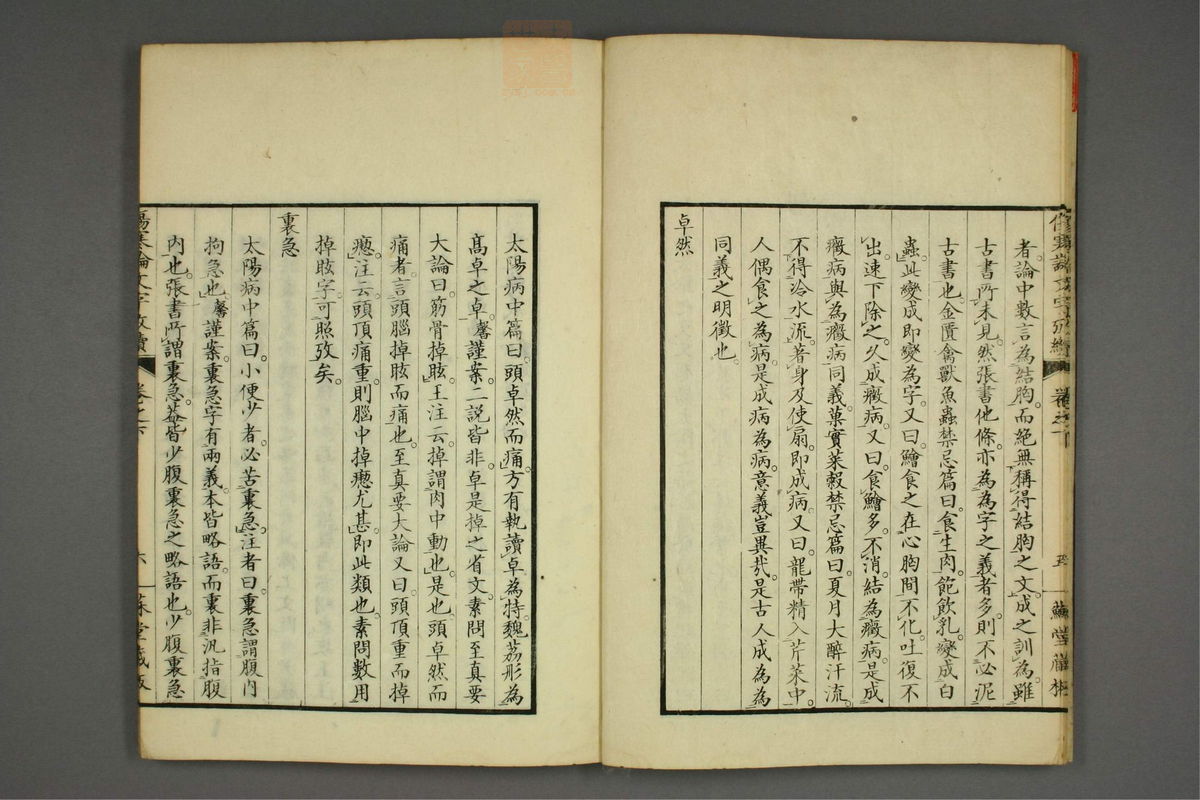 者論中數言為結胸而絕無稱得結胸之文成之訓為雖
古書所未見然張書他條亦為為字之義者多則不必泥
古書也金匱禽獸魚蟲禁忌篇曰食生肉飽飲乳變成白
蟲此變成即變為字又曰鱠食之在心胸間不化吐復不
出速下除之久成癥病又曰食鱠多不消結為癥病是成
癥病與為癥病同義菓實菜穀禁忌篇曰夏月大醉汗流
不得冷水流著身及使扇即成病又曰龍帶精入芹菜中
人偶食之為病是成病為病意義豈異哉是古人成為為
同義之明徵也
卓然
太陽病中篇曰頭卓然而痛方有執讀卓為特魏荔形為
高卓之卓馨謹案二說皆非卓是掉之省文素問至真要
大論曰筋骨掉眩王注云掉謂肉中動也是也頭卓然而
痛者言頭腦掉眩而痛也至真要大論又曰頭頂重而掉
瘛注云頭頂痛重則腦中掉瘛尤甚即此類也素問數用
掉眩字可照攷矣
裏急
太陽病中篇曰小便少者必苦裏急注者曰裏急謂腹內
拘急也馨謹案裏急字有兩義本皆略語而裏非汎指腹
內也張書所謂裏急菴皆少腹裏急之略語也少腹裏急
傷寒論文字攷續
卷之下
六
蘇堂藏版